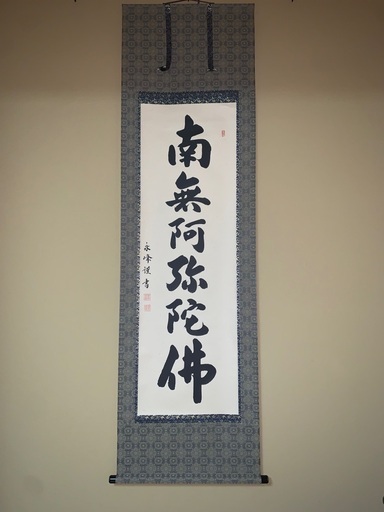 南無阿弥陀佛
永峰謹書